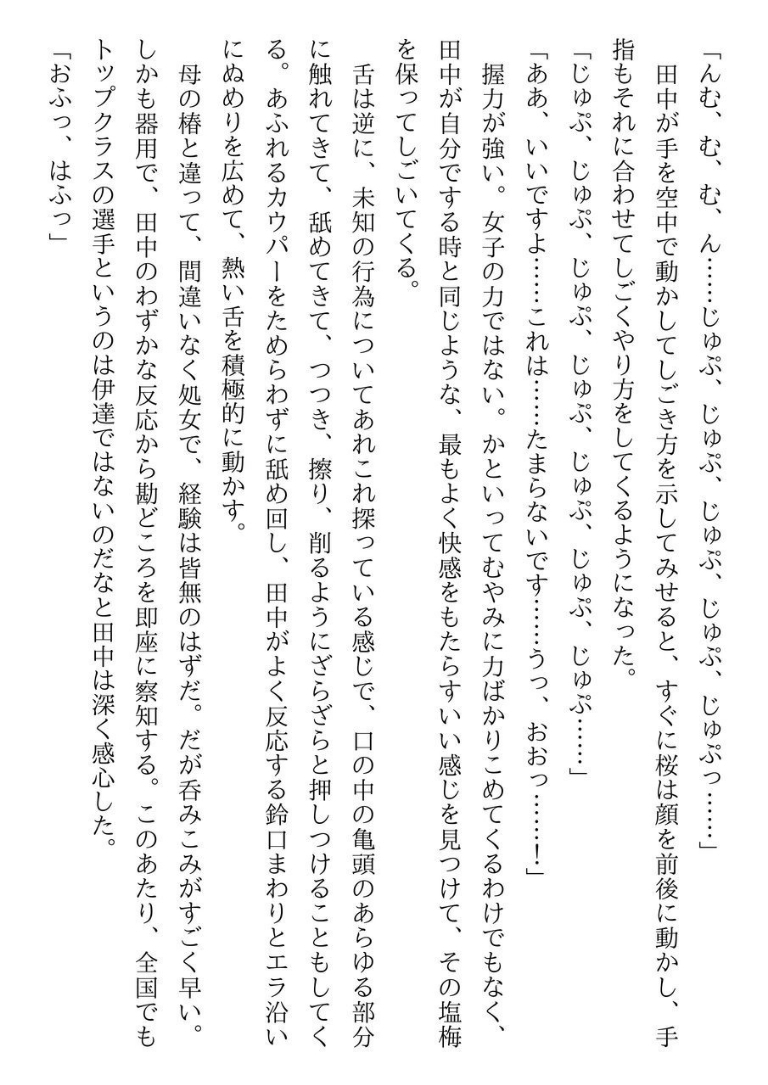 「んむ、む、む、ん……じゅぷ、じゅぷ、じゅぷ、じゅぷ、じゅぷっ……」
田中が手を空中で動かしてしごき方を示してみせると、すぐに桜は顔を前後に動かし、手
指もそれに合わせてしごくやり方をしてくるようになった。
「じゅぷ、じゅぷ、じゅぷ、じゅぷ、じゅぷ、じゅぷ、じゅぷ……」
「ああ、いいですよ……これは……たまらないです……うっ、おおっ……！」
握力が強い。女子の力ではない。かといってむやみに力ばかりこめてくるわけでもなく、
田中が自分でする時と同じような、最もよく快感をもたらすいい感じを見つけて、その塩梅
を保ってしごいてくる。
舌は逆に、未知の行為についてあれこれ探っている感じで、口の中の亀頭のあらゆる部分
に触れてきて、舐めてきて、つつき、擦り、削るようにざらざらと押しつけることもしてく
る。あふれるカウパーをためらわずに舐め回し、田中がよく反応する鈴口まわりとエラ沿い
にぬめりを広めて、熱い舌を積極的に動かす。
母の椿と違って、間違いなく処女で、経験は皆無のはずだ。だが呑みこみがすごく早い。
しかも器用で、田中のわずかな反応から勘どころを即座に察知する。このあたり、全国でも
トップクラスの選手というのは伊達ではないのだなと田中は深く感心した。
「おふっ、はふっ」